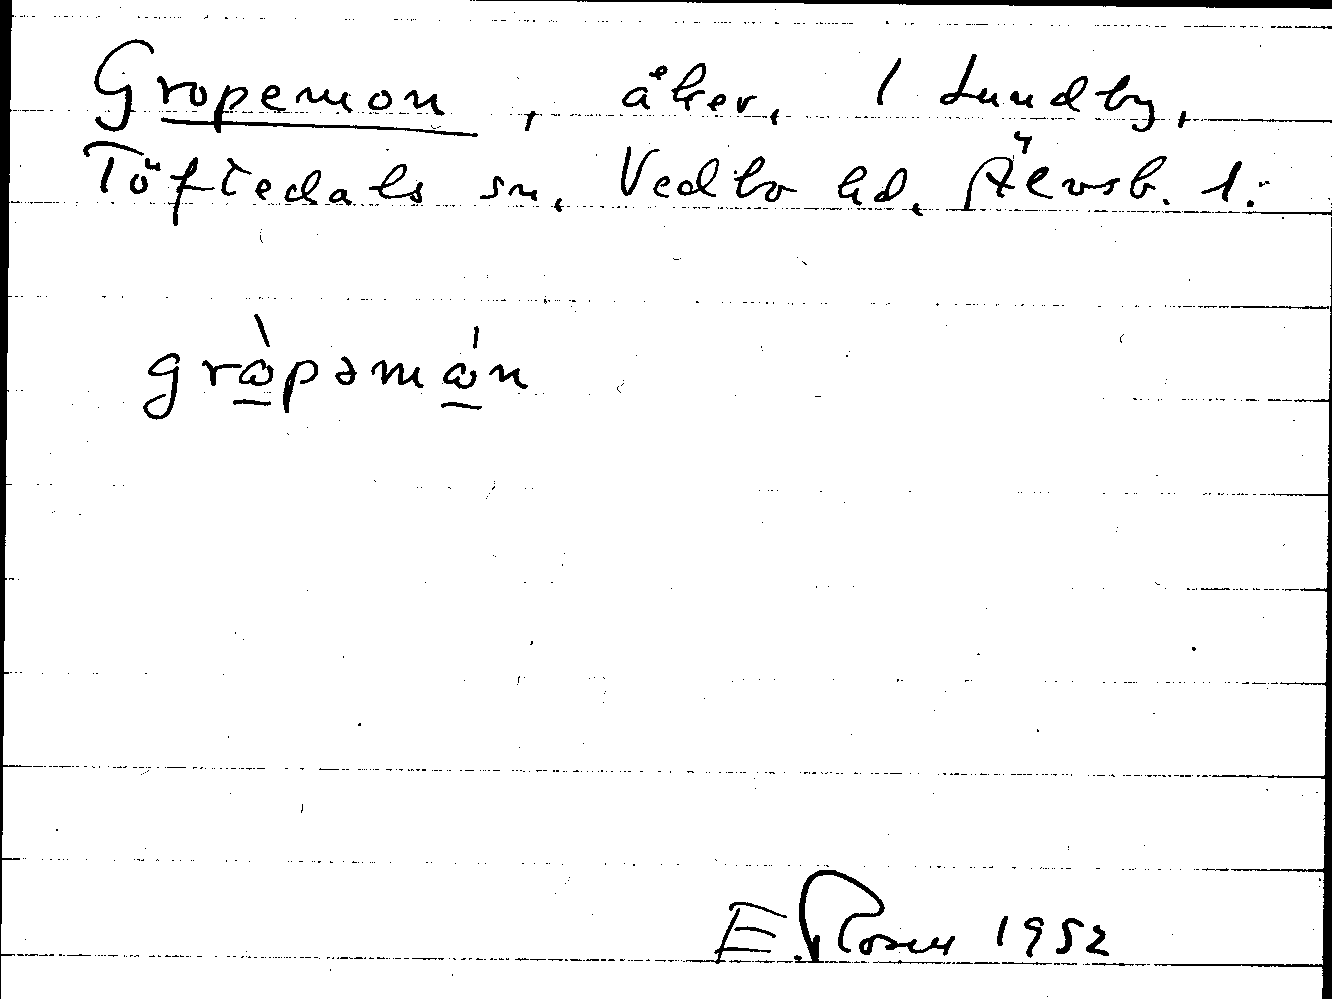 Gropemon, åker, 1 Lundby,
Töftedals sn, Vedbo hd, Älvsb. l.:
grὼpəmώn
E. Rosell 1952